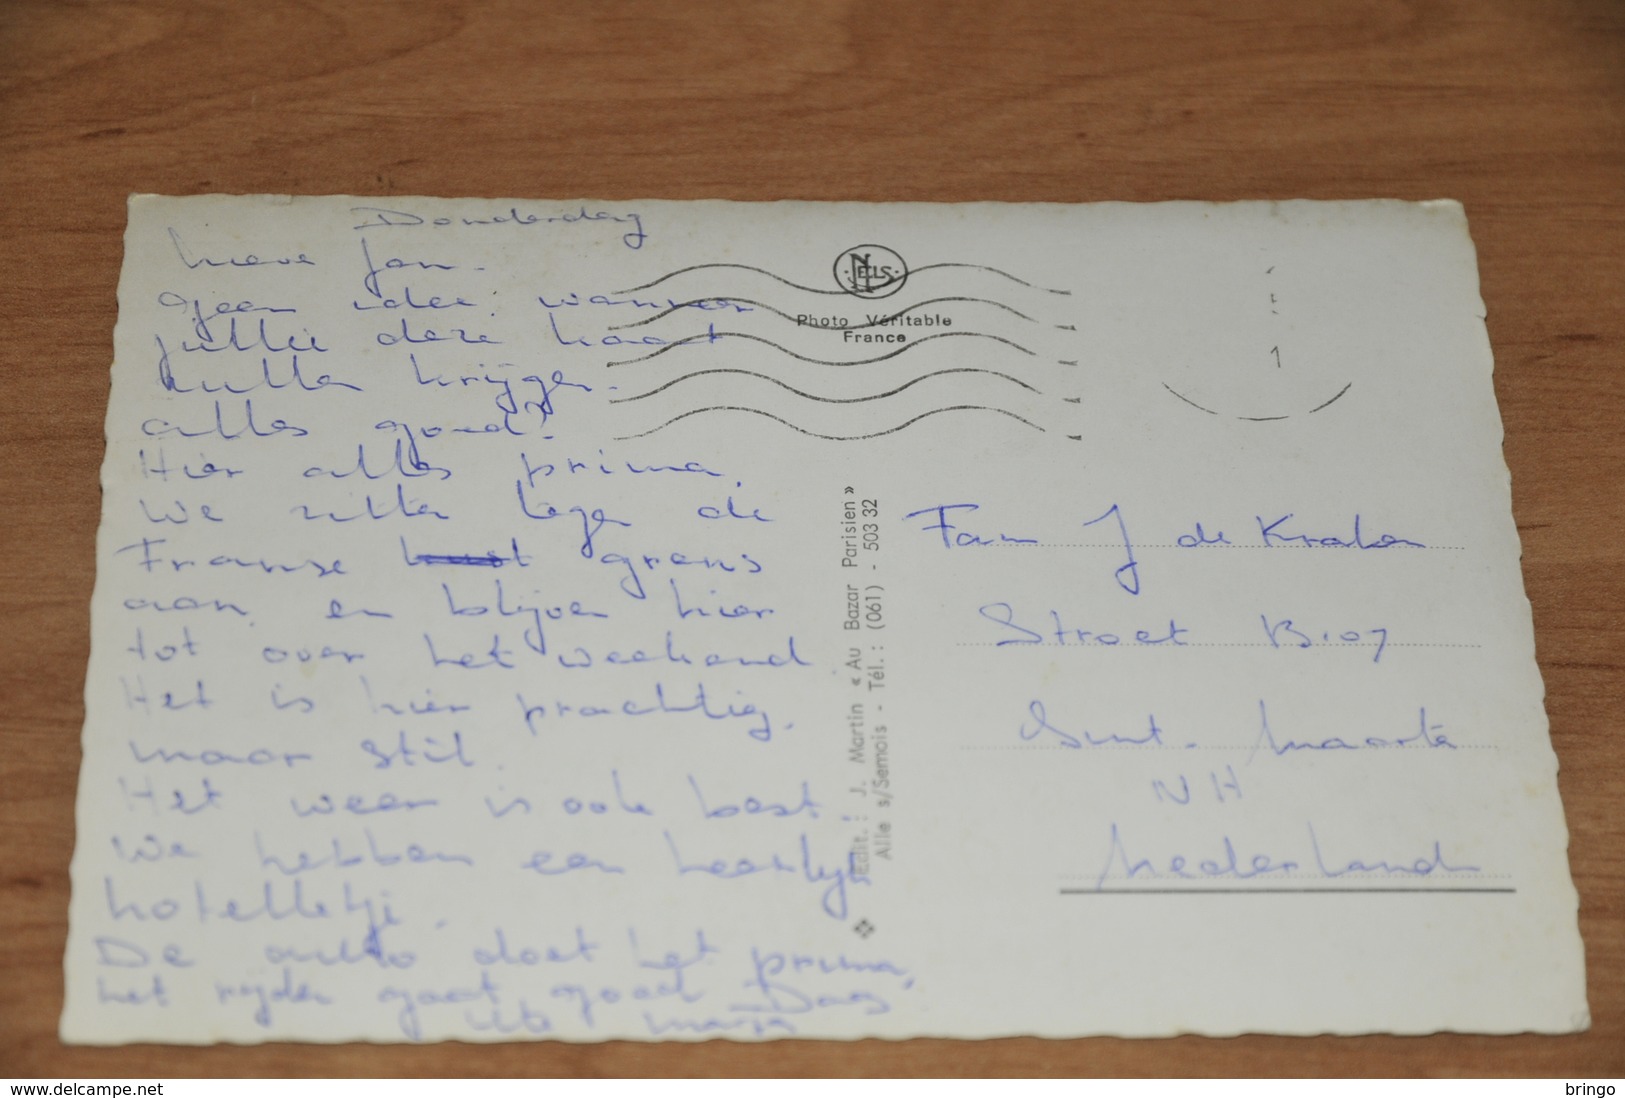 Donderdag
Lieve fam.
geen idee wanneer
jullie deze kaart
zullen krijgen.
alles goed?
Hier alles prima.
We zitten tegen de
Franse grens
aan en blijven hier
tot over het weekend
Het is hier prachtig.
maar stil.
Het weer is ook best.
We hebben een heerlijk
hotelletje.
De auto doet het prima,
het rijden gaat goed Dag
NELS
Photo Véritable
France
Edit.: J. Martin « Au Bazar Parisien »
Alle s/Semois - Tél.: (061) - 503 32
Fam J de
Stroet B 107
Sint. Maarten
NH
Nederland
delcampe.net
bringo